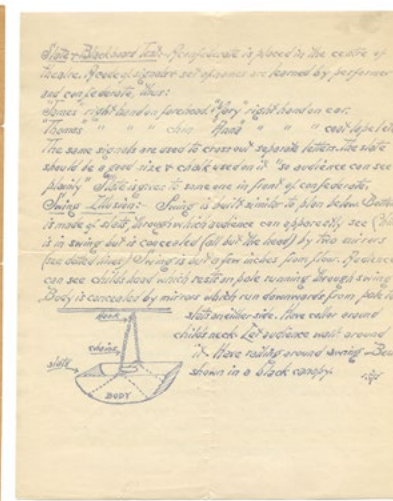 Slate & Blackboard Test:- A confederate is placed in the centre of
theatre. A code of signals & set of names are learned by performer
and confederate, thus:
"James" right hand on forehead. "Mary" right hand on ear.
"Thomas" " " " chin "Anna" " " " coat lapel etc
The same signals are used to cross out separate letters. The slate
should be a good size & chalk used on it "so audience can see
plainly" Slate is given to someone in front of confederate.
Swing Illusion:- Swing is built similar to plan below. Bottom
is made of slats, through which audience can apparently see
is in swing but is concealed (all but the head) by two mirrors
(see dotted lines) Swing is but a few inches from floor. Audience
can see childs head which rests on pole running through swing
Body is concealed by mirrors which run downwards from pole to
slats on either side. Have collar around
childs neck. Let audience walk around
it. Have railing around swing
shown in a black canopy.
Hook
chains
slats
BODY